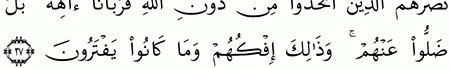 نَصَرَهُمُ ٱلَّذِينَ ٱتَّخَذُوا۟ مِن دُونِ ٱللَّهِ قُرْبَانًا ءَالِهَةَۢ بَلْ
ضَلُّوا۟ عَنْهُمْ ۚ وَذَٰلِكَ إِفْكُهُمْ وَمَا كَانُوا۟ يَفْتَرُونَ ٢٧